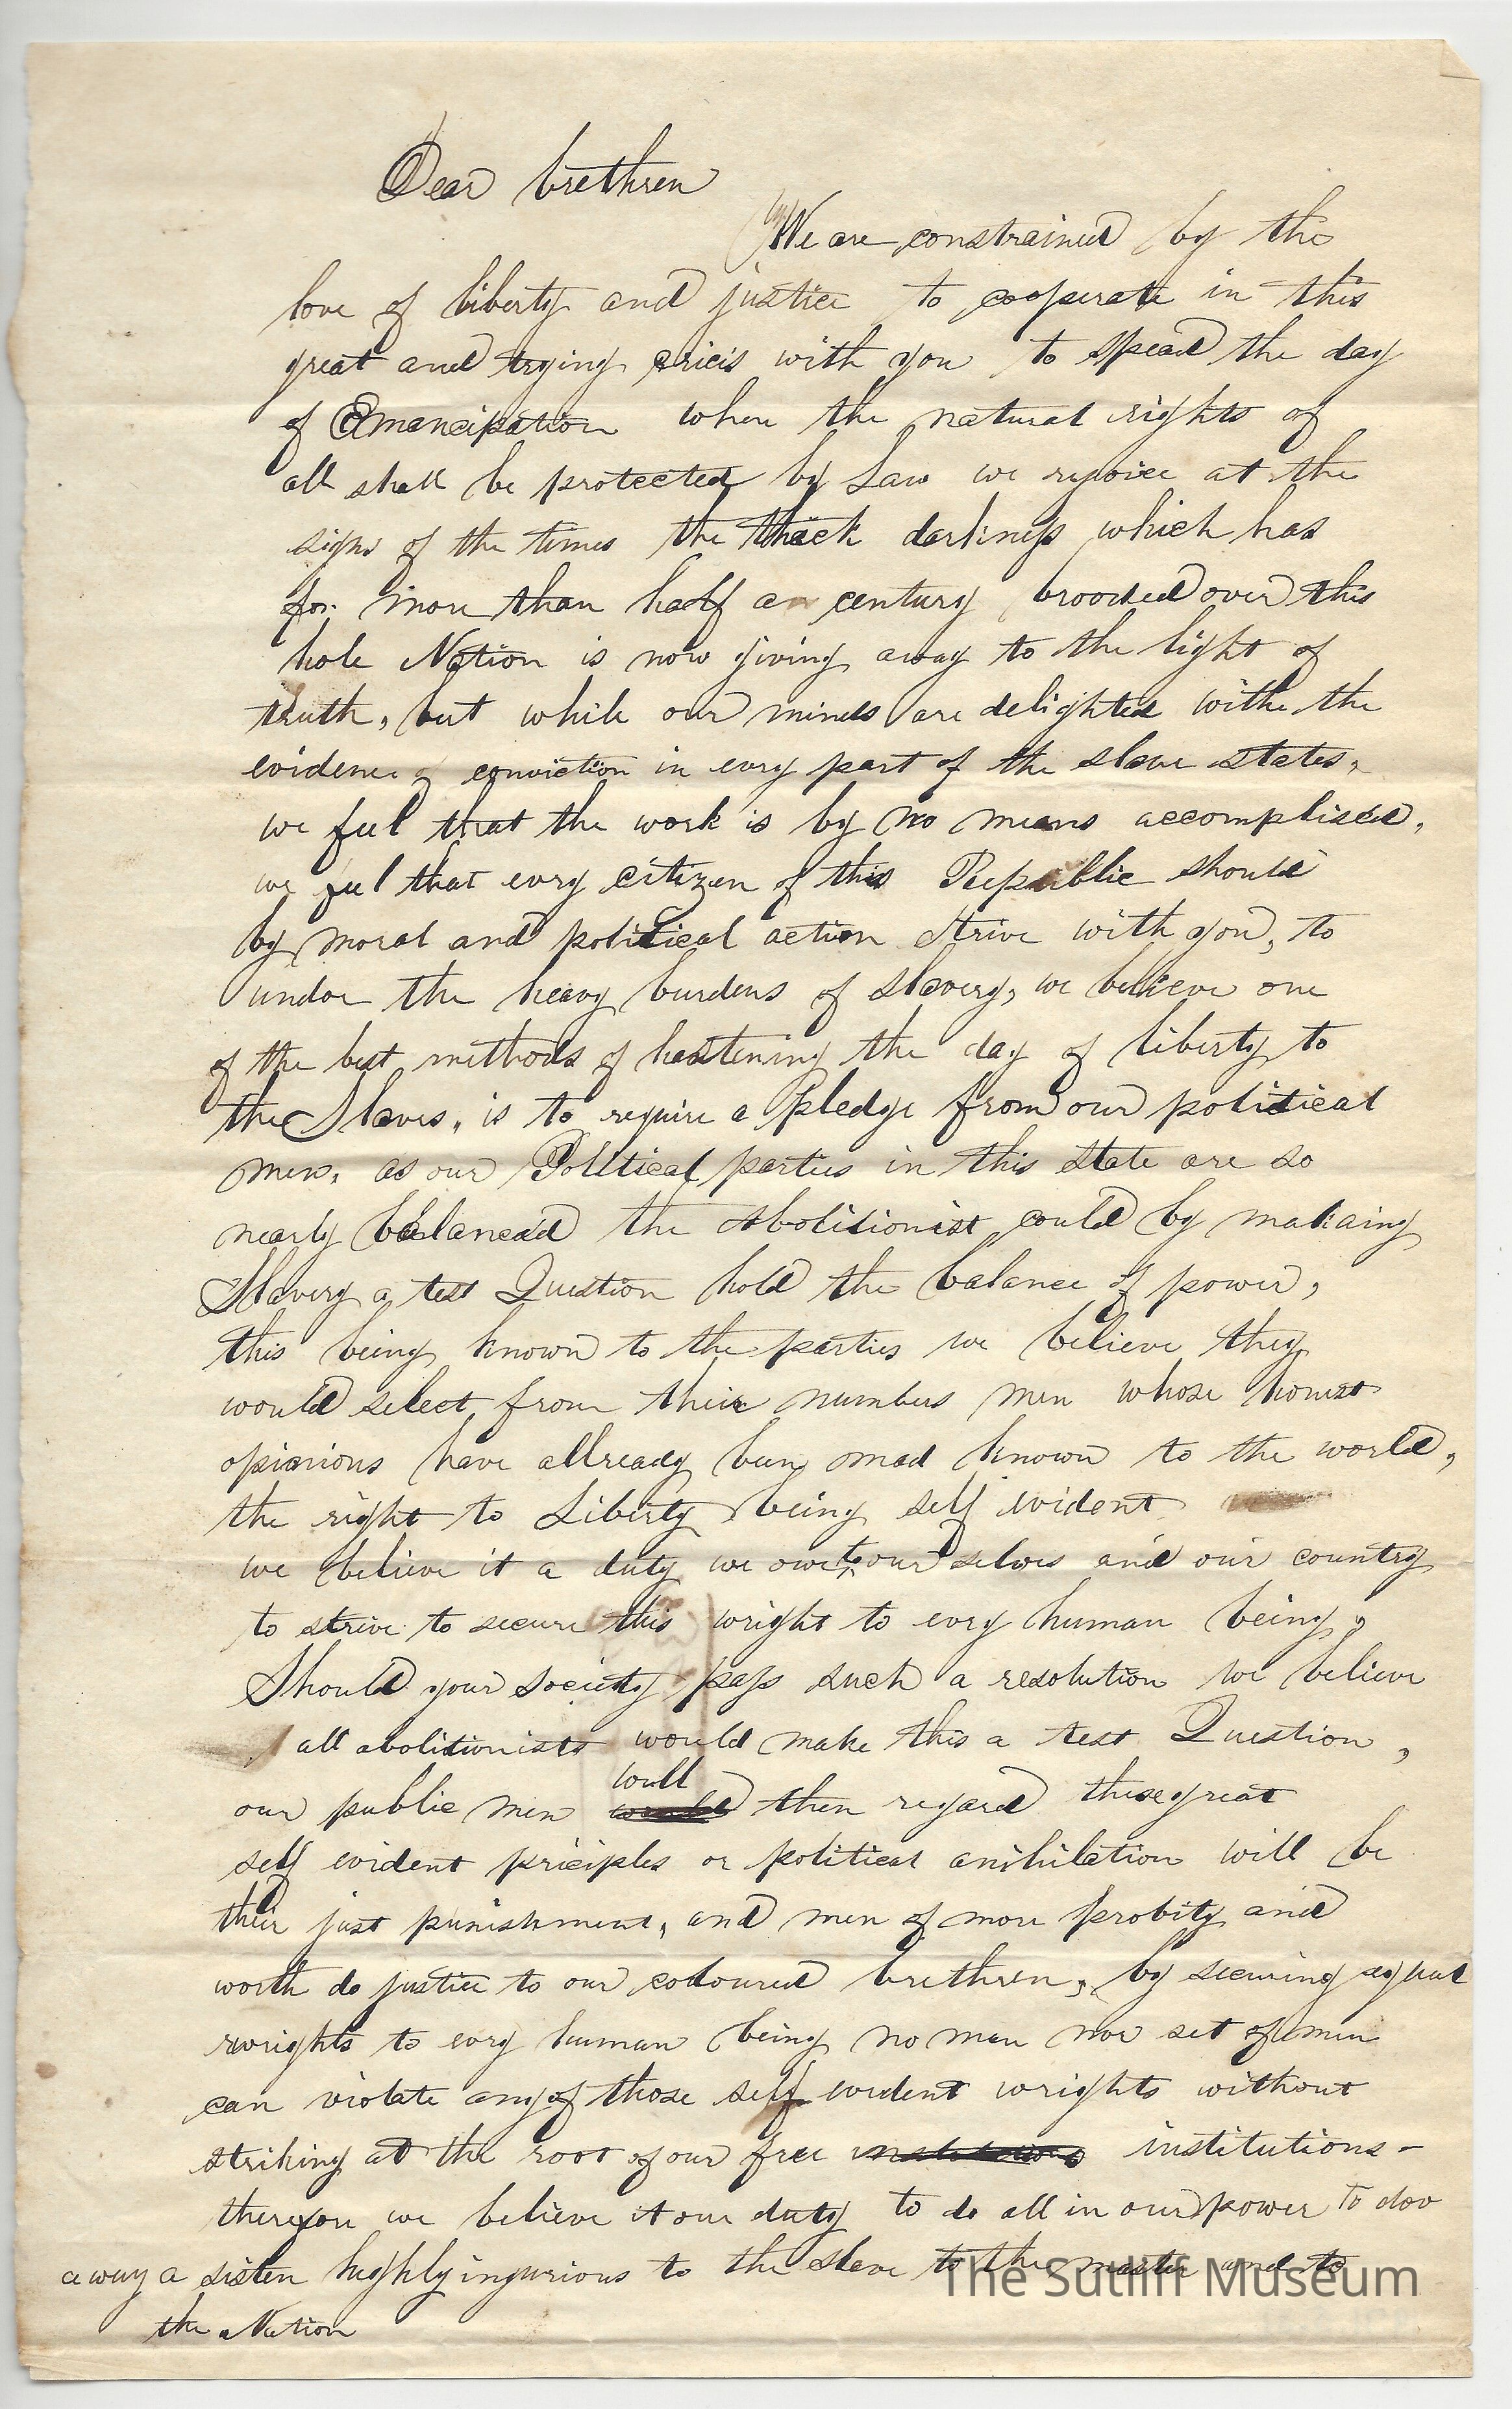 Dear brethren
We are constrained by the
love of liberty and justice to cooperate in this
great and trying cricis with you to spead the day
of Emancipation when the natural rights of
all shall be protected by Law we rejoice at the
signs of the times the thick darkness which has
for more than half a century brooded over this
hole Nation is now giving away to the light of
truth, but while our minds are delighted withe the
evidence of conviction in evry part of the slave states,
we feel that the work is by no means accomplised,
we feel that evry citizen of this Republic should
by moral and political action strive with you, to
undoe the heavy burdens of slavery, we believe one
of the best methods of hastening the day of liberty to
the Slaves, is to require a pledge from our political
men, as our Political parties in this state are so
nearly balanced the abolitionist could by makaing
Slavery a test Question hold the balance of power,
this being known to the parties we believe they
would select from their numbers men whose honest
opinions have allready been mad known to the world,
the right to Liberty being self evident
we believe it a duty we owe to our selves and our country
to strive to secure this wright to evry human being,
Should your society pass such a resolution we believe
all abolitionists would make this a test Question,
our public men will then regard these great
self evident priciples or political anihilation will be
their just punishment, and men of more probity and
worth do justice to our coloured brethren, by securing equal
wrights to evry human being no man nor set of men
can violate any of those self evident wrights without
striking at the root of our free institutions-
therefore we believe it our duty to do all in our power to doo
away a sistem highly ingurious to the slave to the master and to
the Nation
The Sutliff Museum